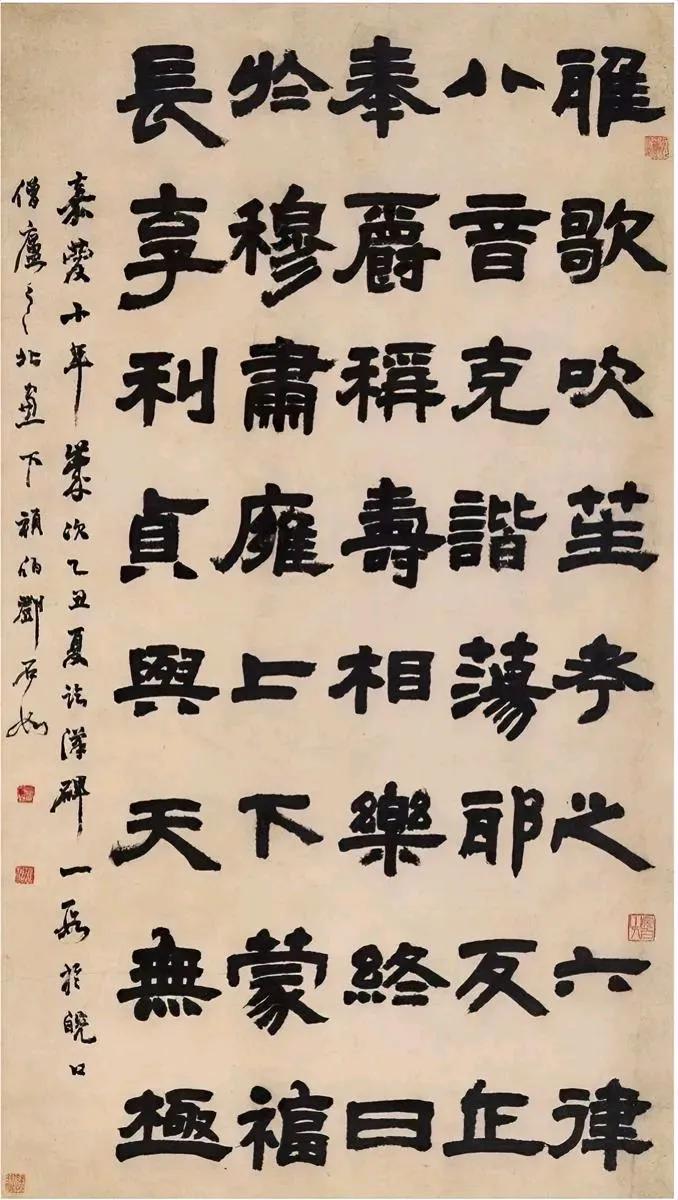 雅歌吹笙考之六律
八音克諧蕩耶反正
奉爵稱壽相樂終日
於穆肅廱上下蒙福
長享利貞與天無極
嘉慶十年歲次乙丑夏臨漢碑一段於皖口
僧廬之北窗下頑伯鄧石如